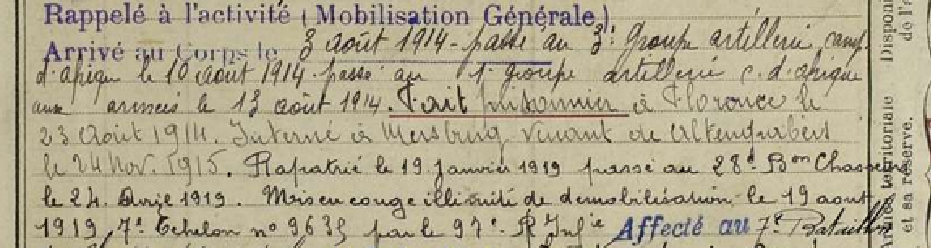 Rappelé à l'activité (Mobilisation Générale)
Arrivé au Corps le 3 août 1914 - passé au 3e groupe artillerie camp.
d'afrique le 10 août 1914 passé au 1er groupe artillerie c. d'afrique
aux armées le 13 août 1914. Fait prisonnier à Florence le
23 Août 1914. Interné à Mersburg venant de
le 24 Nov. 1915. Rapatrié le 19 Janvier 1919 passé au 28e Bon Chasseurs
le 24 Avril 1919. Mis en congé illimité de démobilisation le 19 aout
1919 7e Echelon n° 9635 par le 97e R Infie Affecté au 7e Bataillon
Disponi
de l'a
Armée territoriale
et sa réserve.